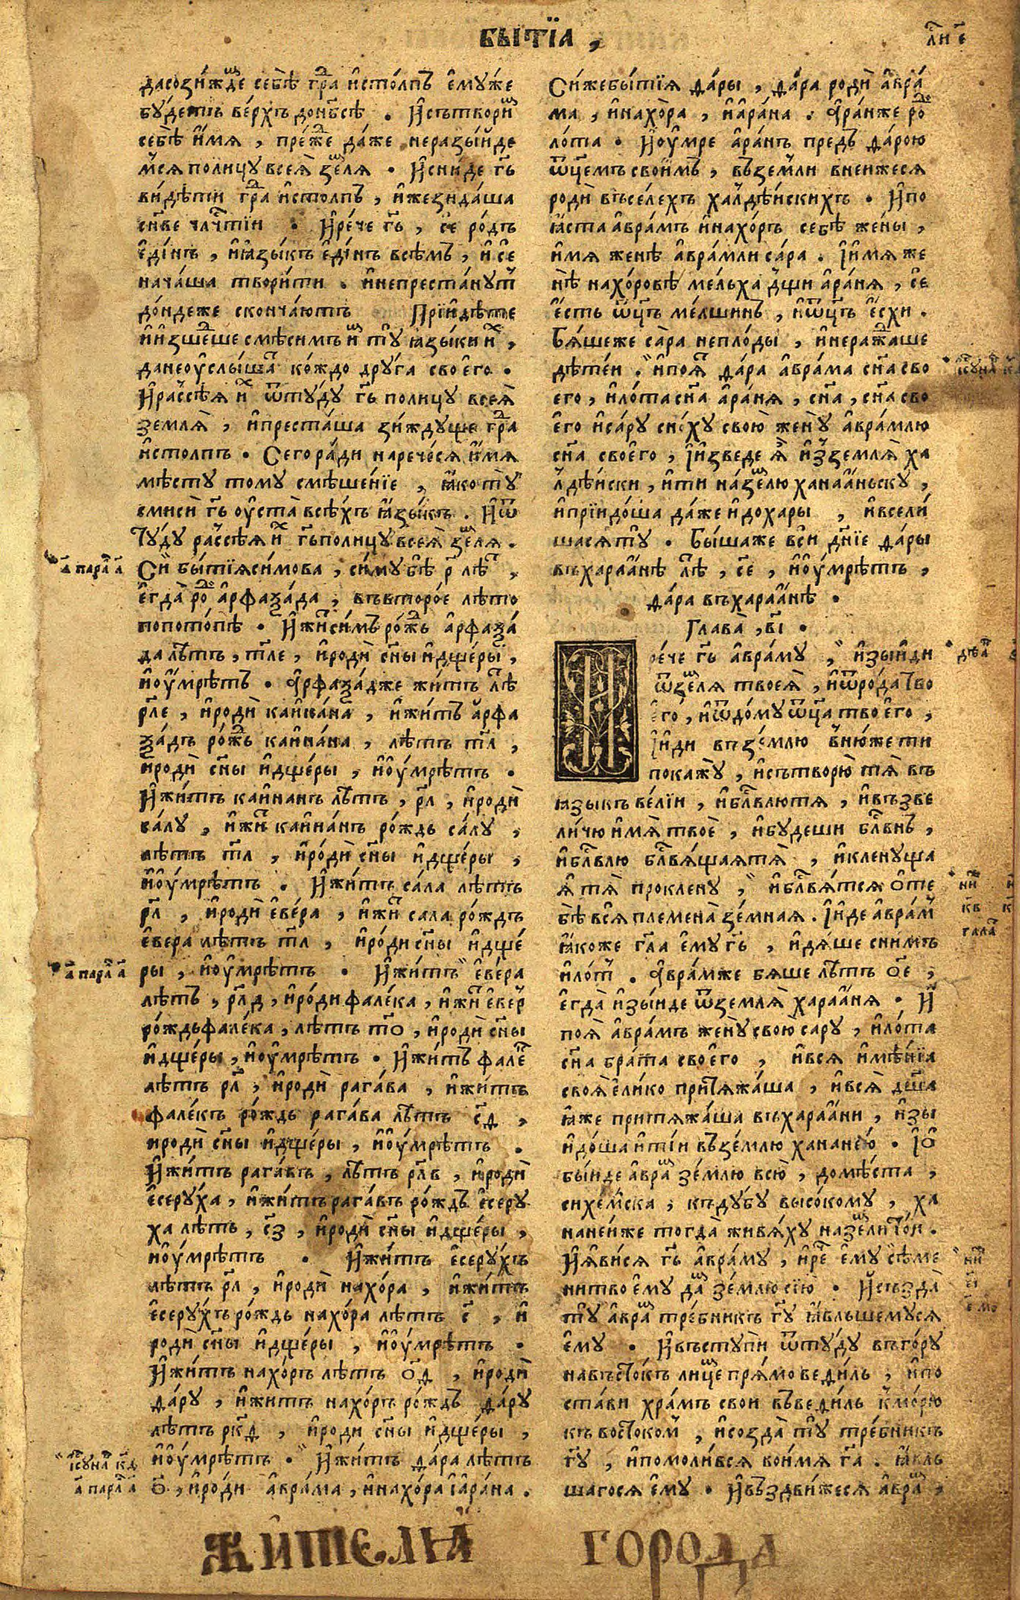 БЫТЇА ,
дасозиждє себѣ гра истолпъ емуже
будетъ верхъ донбсѣ . Исътвори
себѣ имя , преже даже неразыиде
мся полицу всея зеля . Исниде гь
видѣти гра истолпъ , ижезидаша
снве члчтїи . Ирече гь , се родъ
единъ , иязыкъ единъ всѣмъ , исе
начаша творити . инепрестанут
дондеже скончаютъ Прїидѣте
иизшеше смѣсимъ ту языки их ,
данеоуслыша кождо друга своего .
Ирассѣя их ѿтуду гь полицу всея
земля , ипресташа зиждуще гра
истолпъ . Сегоради наречеся имя
мѣсту тому смѣшенїе , яко ту
смиси гь оуста всѣхъ языкъ . Иѿ
туду рассѣя их гьполицу всея зеля .
а парал а
Си бытїясимова , симу бѣ р лѣ ,
егда ро арфаѯада , въвторое лѣто
попотопѣ . Ижисимъ рожь арфаѯа
да лѣтъ , тле , ироди сны идщеры ,
иоумрѣтъ . Арфаѯадже житъ лѣ
рле , ироди каинана , ижитъ арфа
ѯадъ рожь каинана , лѣтъ тл ,
ироди сны идщеры , иоумрѣтъ .
Ижитъ каинанъ лѣтъ , рл , ироди
салу , ижи каинанъ рождь салу ,
лѣтъ тл , ироди сны идщеры ,
иоумрѣтъ . Ижитъ сала лѣтъ
рл , ироди евера , ижи сала рождь
евера лѣтъ тл , ироди сны идще
а парал а
ры , иоумрѣтъ . Ижитъ евера
лѣтъ , рлд , ироди фалека , ижи евер
рождьфалека , лѣтъ то , ироди сны
идщеры , иоумрѣтъ . Ижитъ фале
лѣтъ рл , ироди рагава , ижитъ
фалекъ рождь рагава лѣтъ сд ,
ироди сны идщеры , иоумрѣтъ .
Ижитъ рагавъ , лѣтъ рлв , ироди
есеруха , ижитъ рагавъ рождь есеру
ха лѣтъ , сз , ироди сны идщеры ,
иоумрѣтъ . Ижитъ есерухъ
лѣтъ рл , ироди нахора , ижитъ
есерухъ рождь нахора лѣтъ с , и
роди сны идщеры , иоумрѣтъ .
Ижитъ нахоръ лѣтъ од , ироди
дару , ижитъ нахоръ рождь дару
лѣтъ ркд , ироди сны идщеры ,
иоумрѣтъ . Ижитъ дара лѣтъ
а парал а
о , ироди аврама , инахора іарана .
Сижебытїя дары , дара роди авра
ма , инахора , иарана . Аранже ро
лота . Иоумре аранъ предъ дарою
ѿцемъ своимъ , въземли внеижеся
роди въселехъ халдѣискихъ . Ипо
яста аврамъ инахоръ себѣ жены ,
имя женѣ аврамли сара . Іимя же
нѣ нахоровѣ мельха дщи араня , се
есть ѿцъ мелшинъ , иѿцъ есхи .
Бяшеже сара неплоды , инеражаше
дѣтеи . ипоя дара аврама сна сво
его , илота сна араня , сна , сна сво
его исару сноху свою жену аврамлю
сна своего , Іизведе я изземля ха
лдѣиски , ити назелю ханааньску ,
иприидоша даже идохары , ивсели
шасяту . Бышаже вси днїе дары
въхараанѣ лѣ , се , иоумрѣтъ ,
дара въхараанѣ .
Глава , ві .
И
рече гь авраму , изыиди
ѿзеля твоея , иѿрода тво
его , иѿдому ѿца твоего ,
Іиди вземлю внюжети
покажу , исътворю тя въ
языкъ велїи , иблвлютя , ивъзве
личю имя твое , ибудеши блвнъ ,
иблвлю блвящаятя , икленуща
я тя проклену , иблвятся оте
бѣ вся племена земная . Іиде аврам
якоже гла ему гь , идяше снимъ
илот . Аврамже бяше лѣтъ ое ,
егда изыиде ѿземля хараання . И
поя аврамъ жену свою сару , илота
сна брата своего , ився имѣнїа
своя елико притяжаша , ився дша
яже притяжаша въхараани , изы
идоша ити въземлю хананею . Іо
быиде авра землю всю , домѣста ,
сихемска , къдубу высокому , ха
нанеиже тогда живяху назели тои .
Иявися гь авраму , ире ему сѣме
нитвоему да землю сїю . Исъзда
ту авра требникъ гу явльшемуся
ему . Ивъступи ѿтуду въгору
навъстокъ лице прямо ведиль , ипо
стави храмъ свои въведиль кморю
къ востоком , исозда ту требникъ
гу , ипомолився воимя га . явль
шагося ему . Ивъздвижеся авра ,
ЖИТЕЛИ ГОРОДА